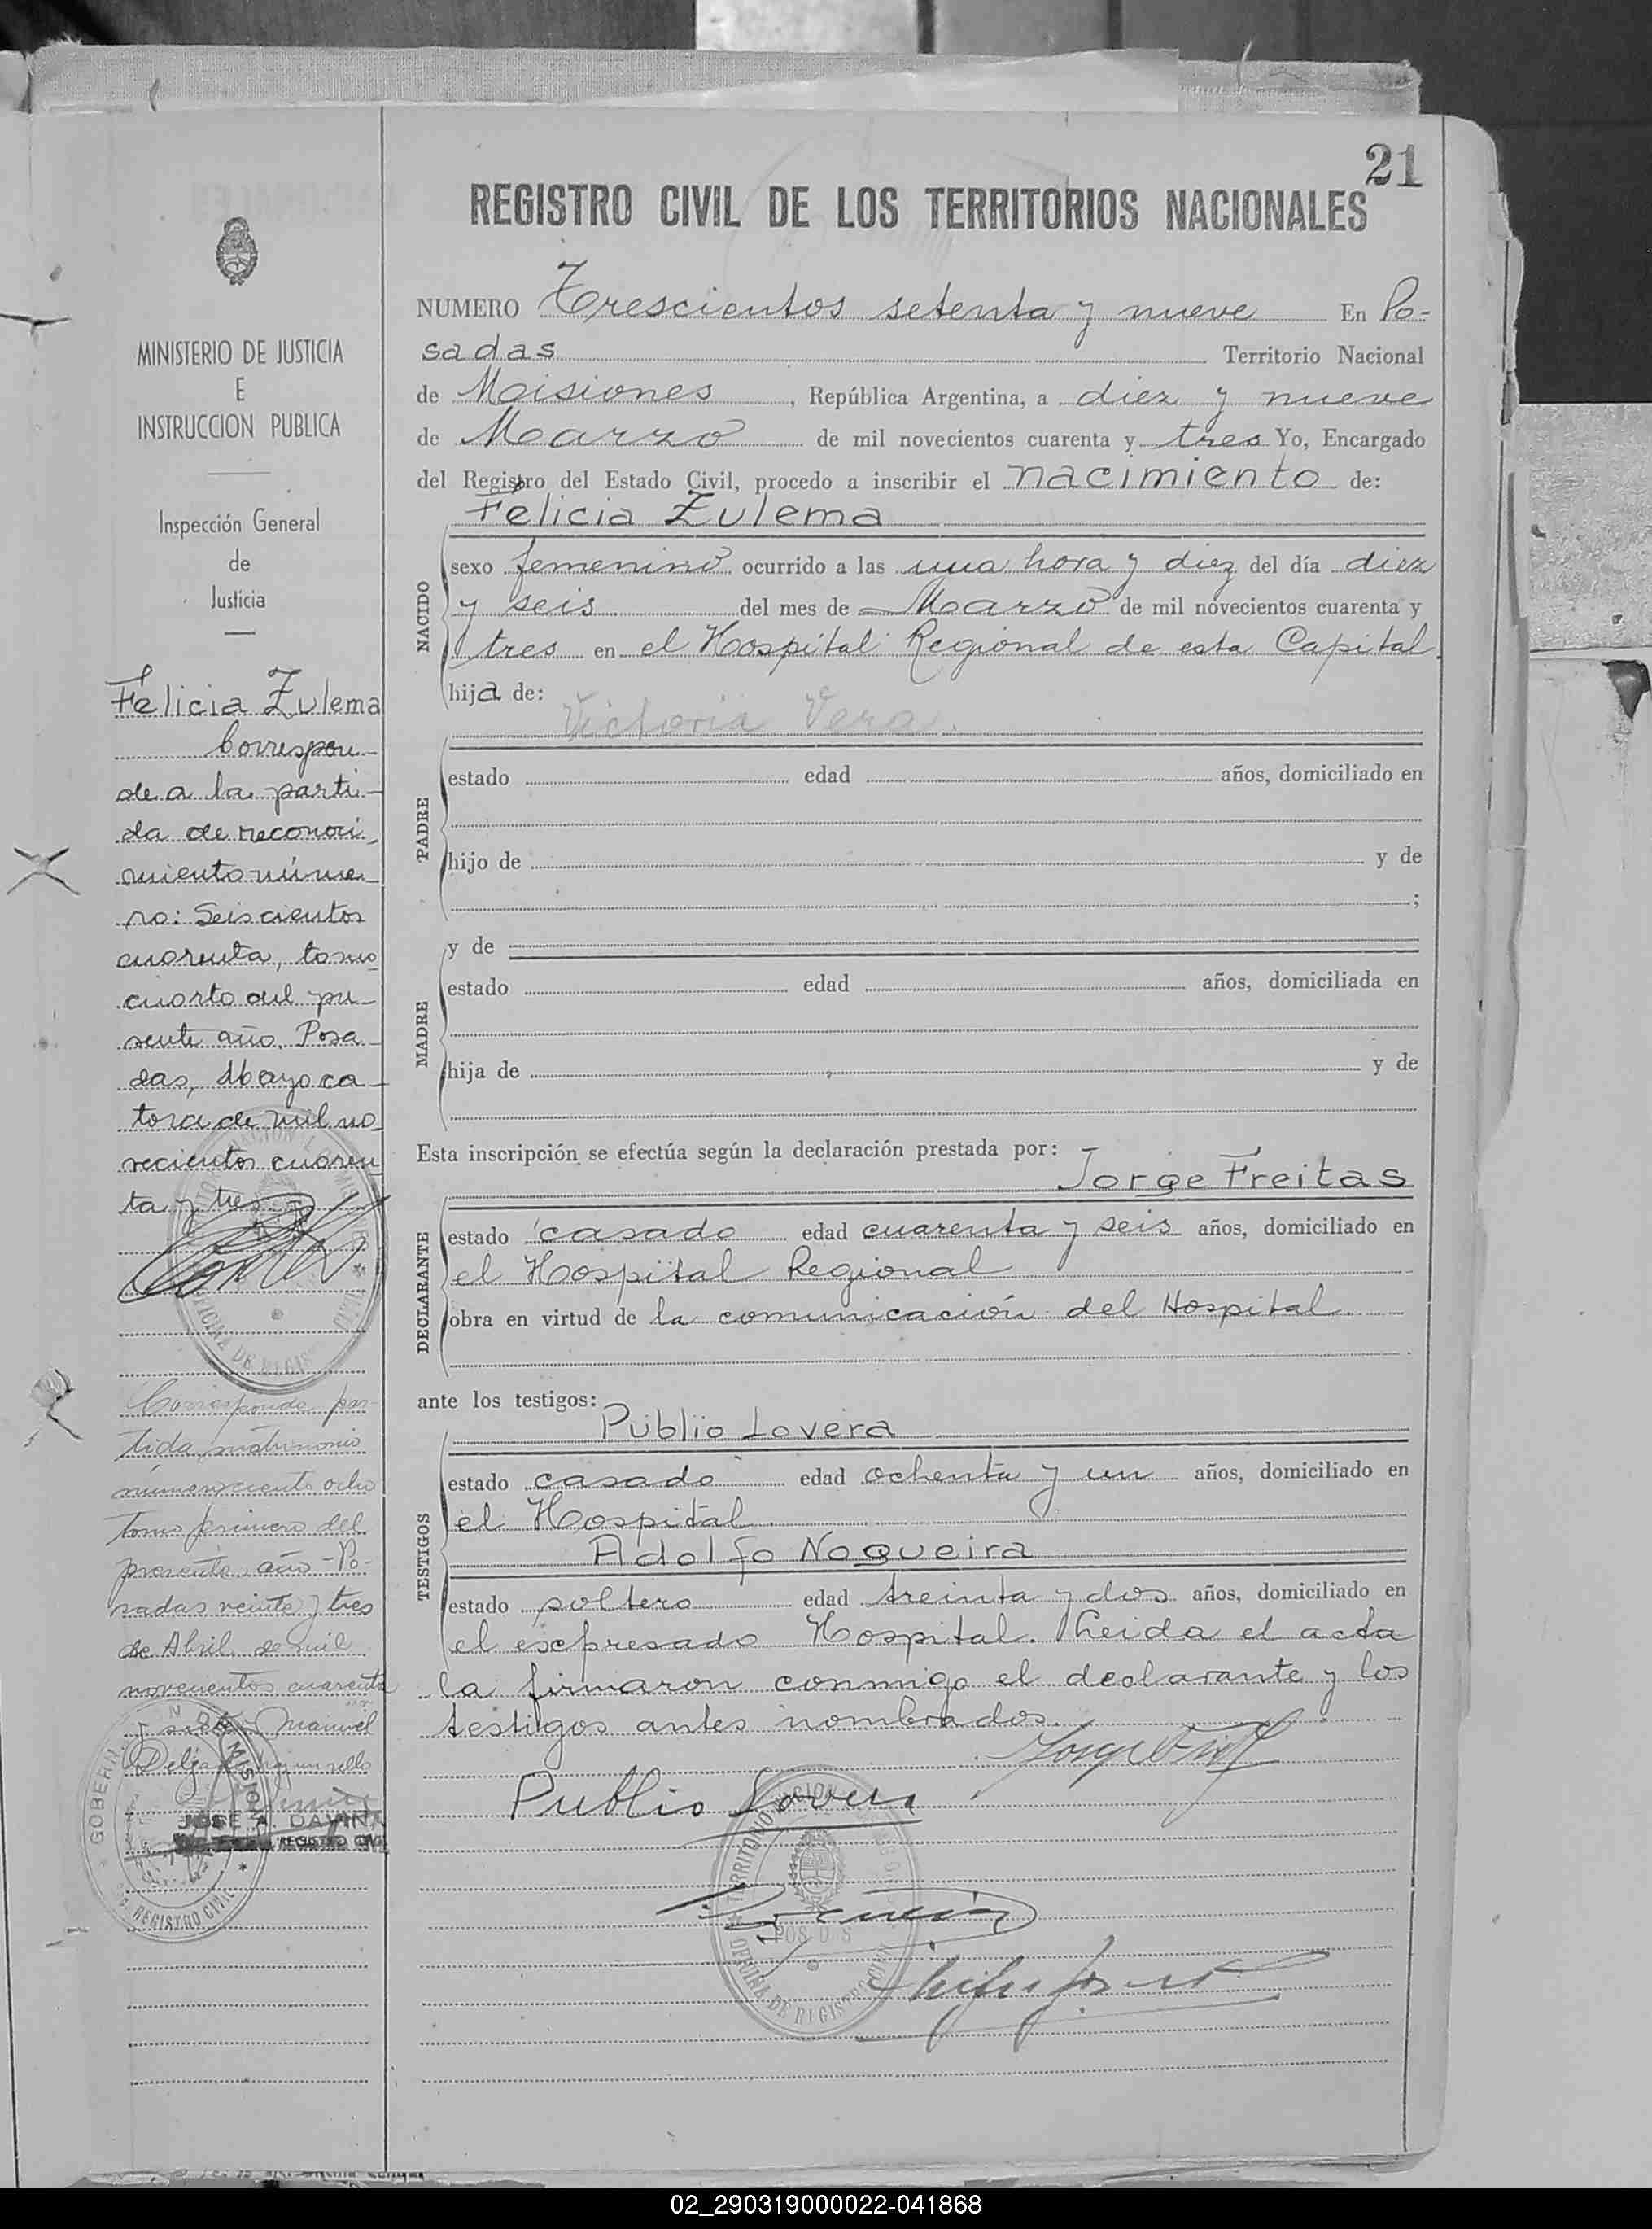 21
REGISTRO CIVIL DE LOS TERRITORIOS NACIONALES
MINISTERIO DE JUSTICIA
E
INSTRUCCION PUBLICA
Inspección General
de
Justicia
Felicia Zulema
Correspon-
de a la parti-
da de reconoci-
miento núme-
ro: Seiscientos
cuarenta, tomo
cuarto del pre-
sente año. Posa-
das, Mayo ca-
torce de mil no-
vecientos cuaren-
ta y tres
Corresponde par-
tida matrimonio
número ciento ocho
Tomo primero del
presente año - Po-
sadas veinte y tres
de Abril de mil
novecientos cuarenta
y siete Manuel
JOSE A. DAVIÑA
REGISTRO CIVIL
NUMERO Trescientos setenta y nueve En Po-
sadas Territorio Nacional
de Misiones, República Argentina, a diez y nueve
de Marzo de mil novecientos cuarenta y tres Yo, Encargado
del Registro del Estado Civil, procedo a inscribir el nacimiento de:
Felicia Zulema
NACIDO
sexo femenino ocurrido a las una hora y diez del día diez
y seis del mes de Marzo de mil novecientos cuarenta y
tres en el Hospital Regional de esta Capital.
hija de:
Victoria Vera.
PADRE
estado edad años, domiciliado en
hijo de y de
;
MADRE
y de
estado edad años, domiciliada en
hija de y de
Esta inscripción se efectúa según la declaración prestada por:
Jorge Freitas
DECLARANTE
estado casado edad cuarenta y seis años, domiciliado en
el Hospital Regional
obra en virtud de la comunicación del Hospital.
ante los testigos:
Publio Lovera
TESTIGOS
estado casado edad ochenta y un años, domiciliado en
el Hospital.
Adolfo Nogueira
estado soltero edad treinta y dos años, domiciliado en
el escpresado Hospital. Leida el acta
la firmaron conmigo el declarante y los
testigos antes nombrados.
Publio Lovera
02_290319000022-041868